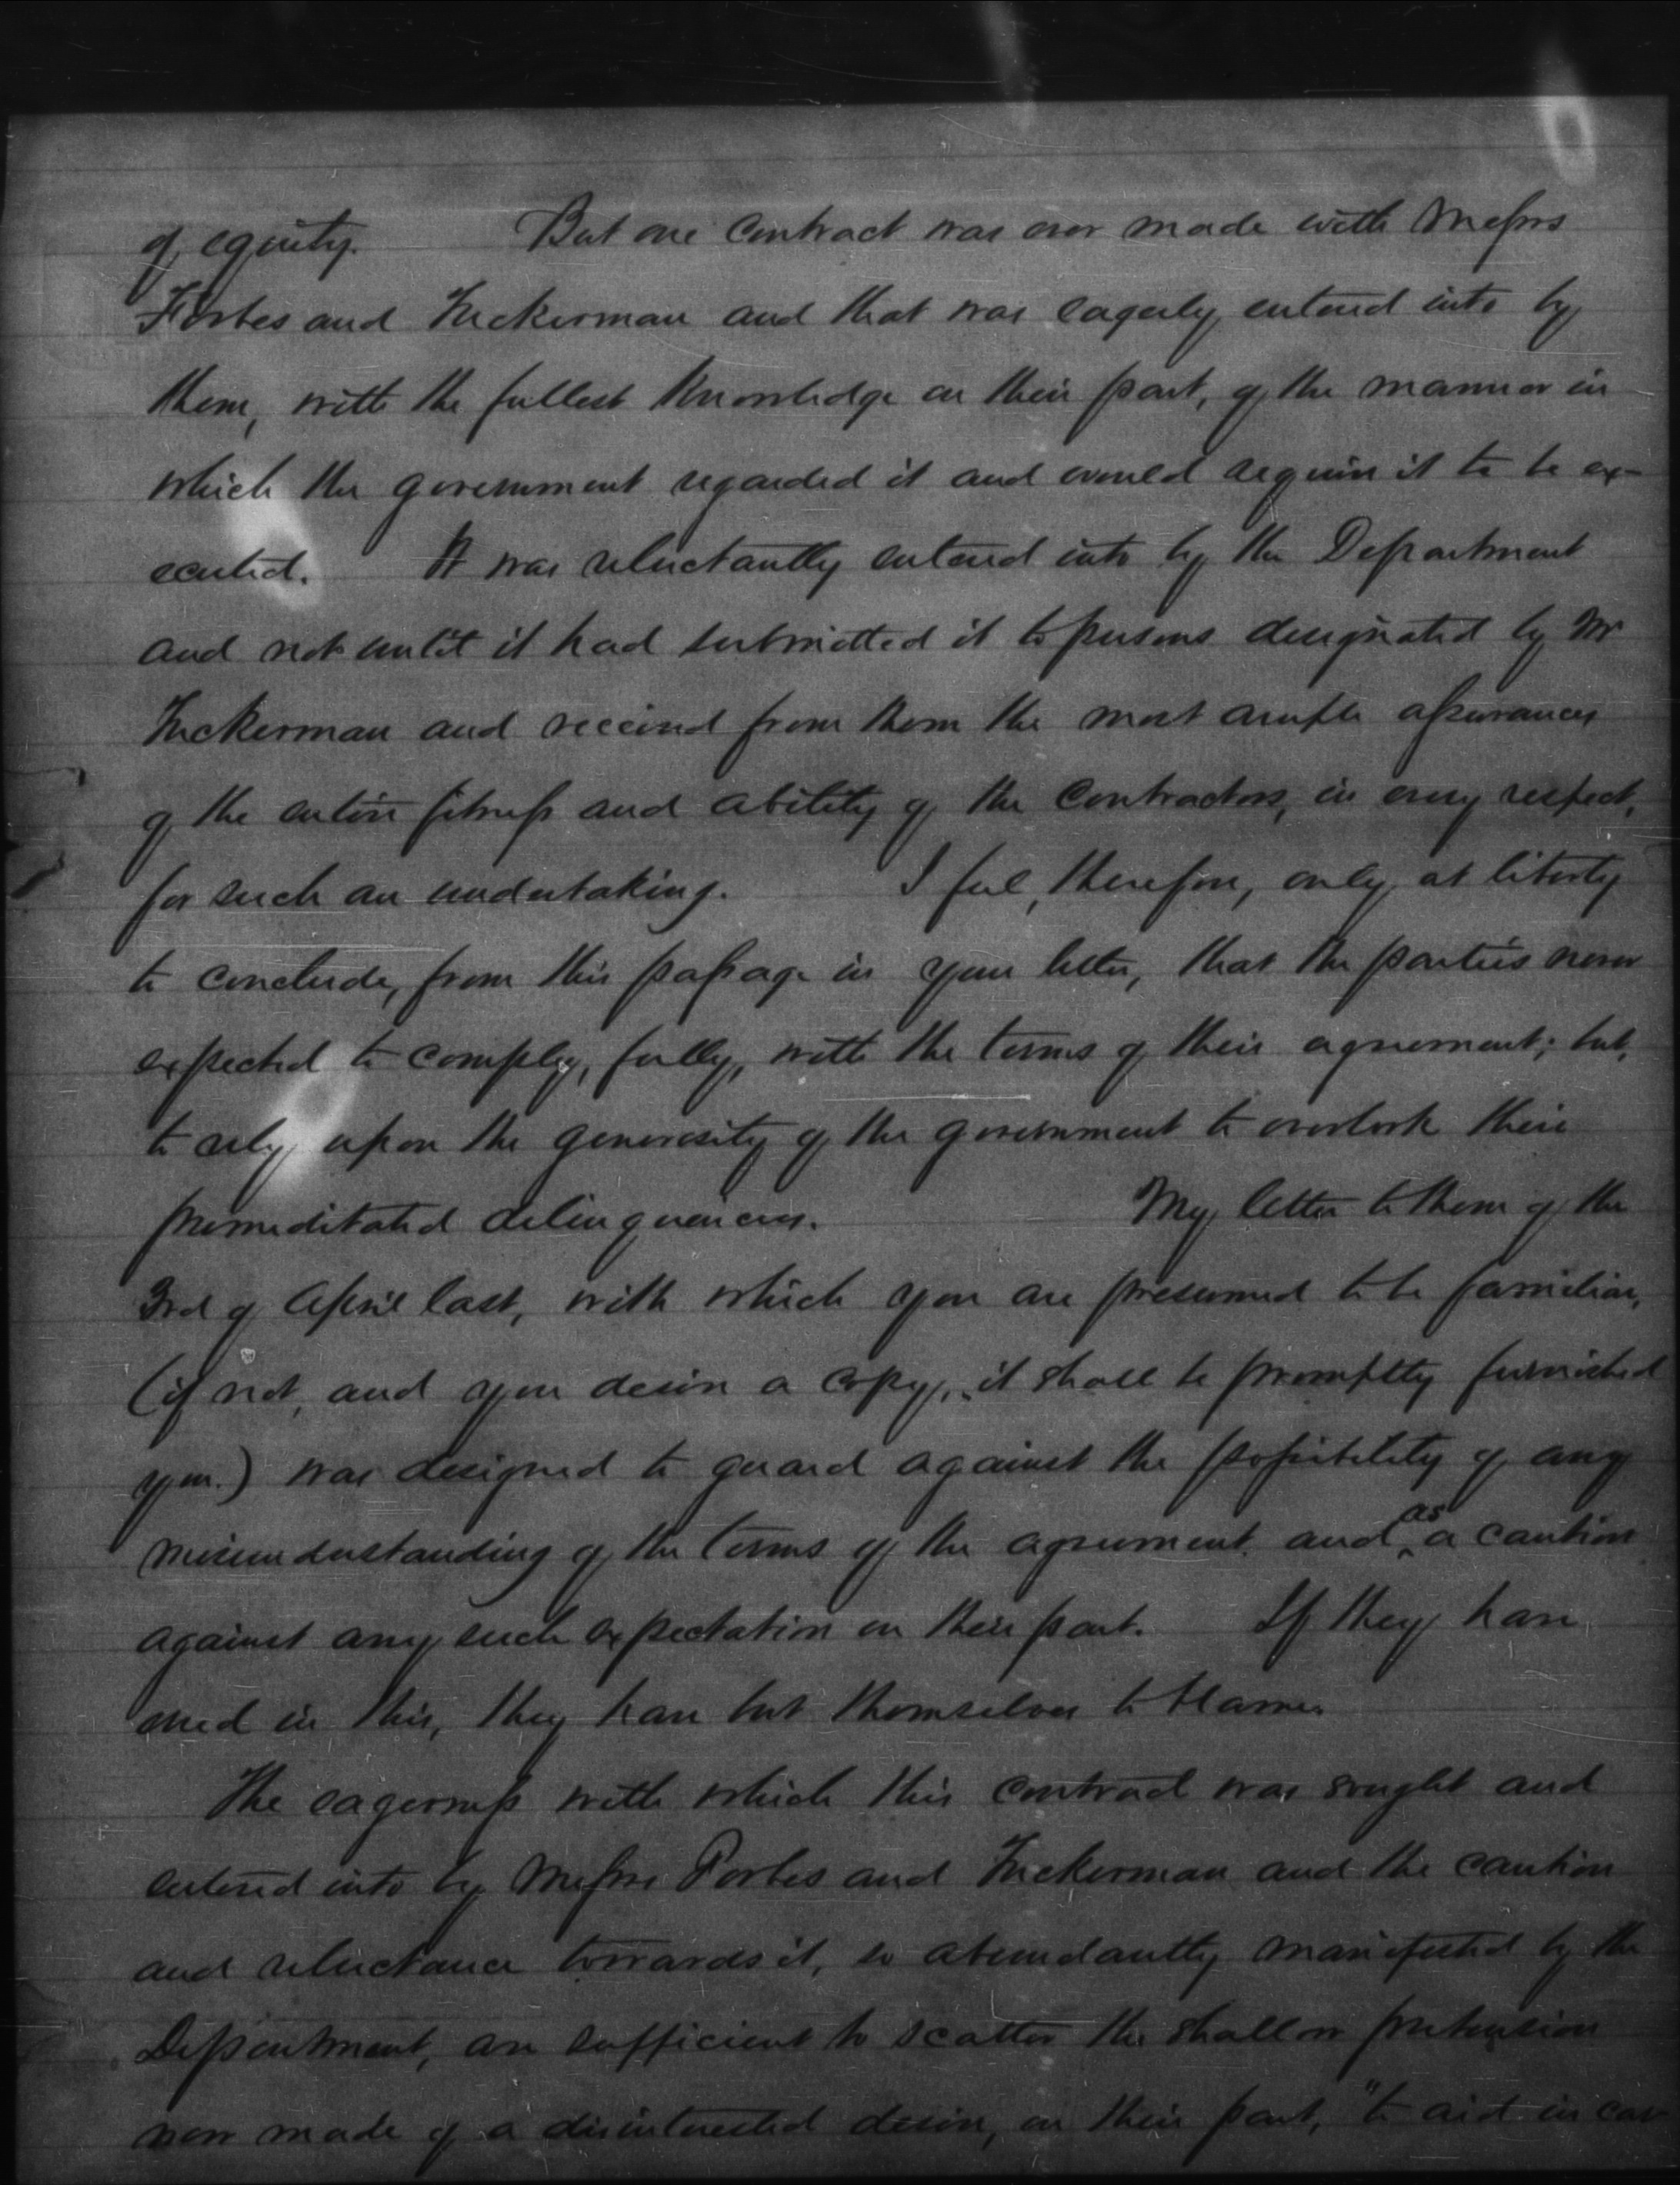 of equity. But one contract was ever made with Messrs
Forbes and Tuckerman and that was eagerly entered into by
them, with the fullest knowledge on their part, of the manner in
which the government regarded it and would require it to be ex-
ecuted. It was reluctantly entered into by the Department
and not until it had submitted it to persons designated by Mr
Tuckerman and received from them the most ample assurances
of the entire fitness and ability of the Contractors, in every respect,
for such an undertaking. I feel, therefore, only at liberty
to conclude, from this passage in your letter, that the parties never
expected to comply, fully, with the terms of their agreement; but,
to rely upon the generosity of the government to overlook their
premeditated delinquencies. My letter to them of the
3rd of April last, with which you are presumed to be familiar,
(if not, and you desire a copy, it shall be promptly furnished
you.) was designed to guard against the possibility of any
misunderstanding of the terms of the agreement and as a caution
against any such expectation on their part. If they have
erred in this, they have but themselves to blame.
The eagerness with which this contract was sought and
entered into by Messrs Forbes and Tuckerman and the caution
and reluctance towards it, so abundantly manifested by the
Department, are sufficient to scatter the shallow pretension
now made of a disinterested desire, on their part, "to aid in car